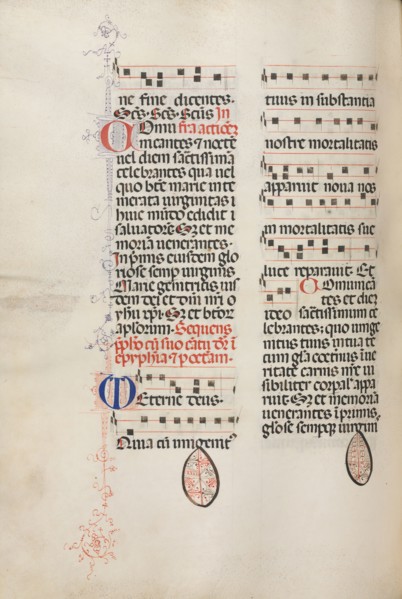 ne fine dicentes.
Scs. Scs. Scūs In
Comu͞ i͞fra action͞e
Cōicantes ⁊ nocte͞
uel diem sactissima͞
celebrantes qua uel
quo bte͞ marie inte
merata uirginitas
huic mu͞do edidit
saluatore͞ Sꝫ et me
moria͞ uenerantes.
In p͞mis eiusdem glo
riose semp uirginis
Marie genitricis
dem dei et dn͞i nr͞i
yħu xp͞i. Sꝫ et btor͞
aplorum. Sequens
cu͞ suo
epyphia ⁊
Eterne deus.
Quia cu͞ unigenit⁹
tuus in substantia
nostre mortalitatis
apparuit noua nos
in mortalitatis sue
luce reparauit. Et
ideo Comunica͞
tes et die͞
sactissimum ce
lebrantes; quo unige
nitus tuus in tua te
cum gl͞a coetnus in ue
ritate carnis nr͞e ui
sibiliter corpal͞ appa
ruit. Sꝫ et memoria
uenerantes i͞ primis.
glo͞se sempꝫ uirgin͞